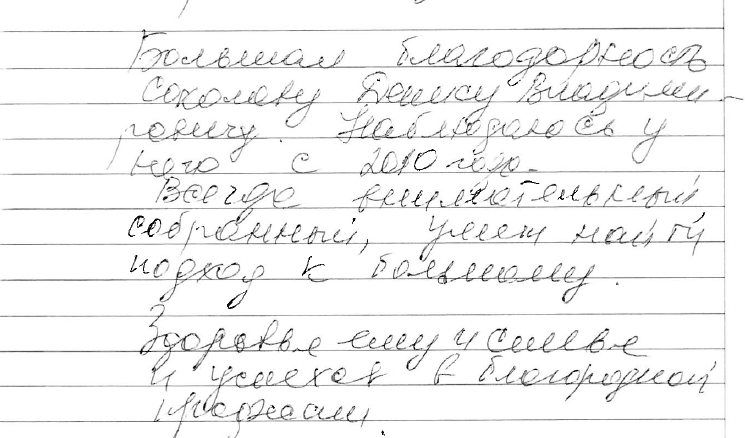 Большая благодарность
Соколову Денису Владими-
ровичу. Наблюдаюсь у
него с 2010 года.
Всегда внимательный
собранный, умеет найти
подход к больному.
Здоровье ему и семье
и успехов в благородной